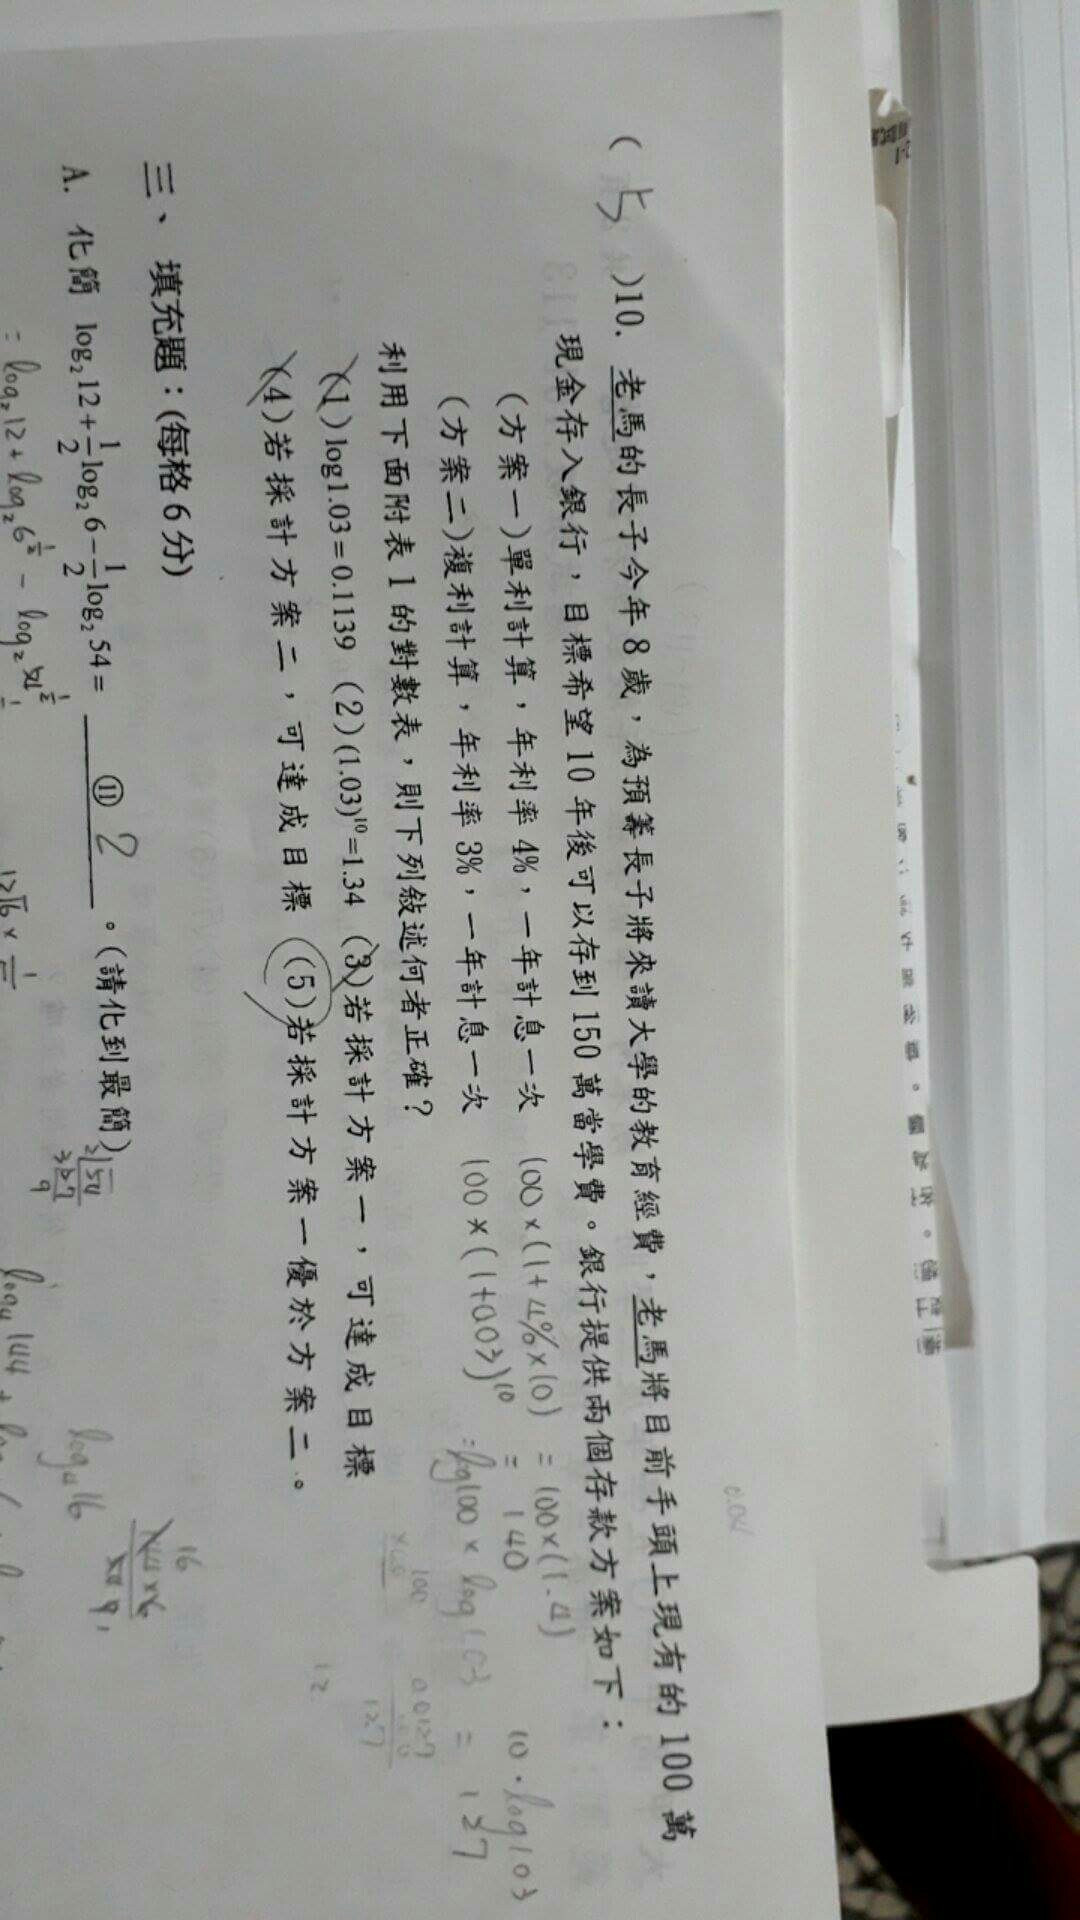 ( 5 )10. 老馬的長子今年8歲，為預籌長子將來讀大學的教育經費，老馬將目前手頭上現有的100萬
現金存入銀行，目標希望10年後可以存到150萬當學費。銀行提供兩個存款方案如下：
(方案一)單利計算，年利率4%，一年計息一次 100×(1+4%×10) = 100×(1.4)
= 140
10·log103
(方案二)複利計算，年利率3%，一年計息一次 100×(1+003)¹⁰
log100×log103 = 127
利用下面附表1的對數表，則下列敘述何者正確？
100
0.0127
127
12
(1) log1.03=0.1139 (2) (1.03)¹⁰=1.34 (3)若採計方案一，可達成目標
(4)若採計方案二，可達成目標 (5)若採計方案一優於方案二。
三、填充題：(每格6分)
A. 化簡 log₂12+½log₂6−½log₂54= ⑪ 2 。(請化到最簡)
log₄16
= log₂12+log₂6^½ − log₂54^½
log₄144